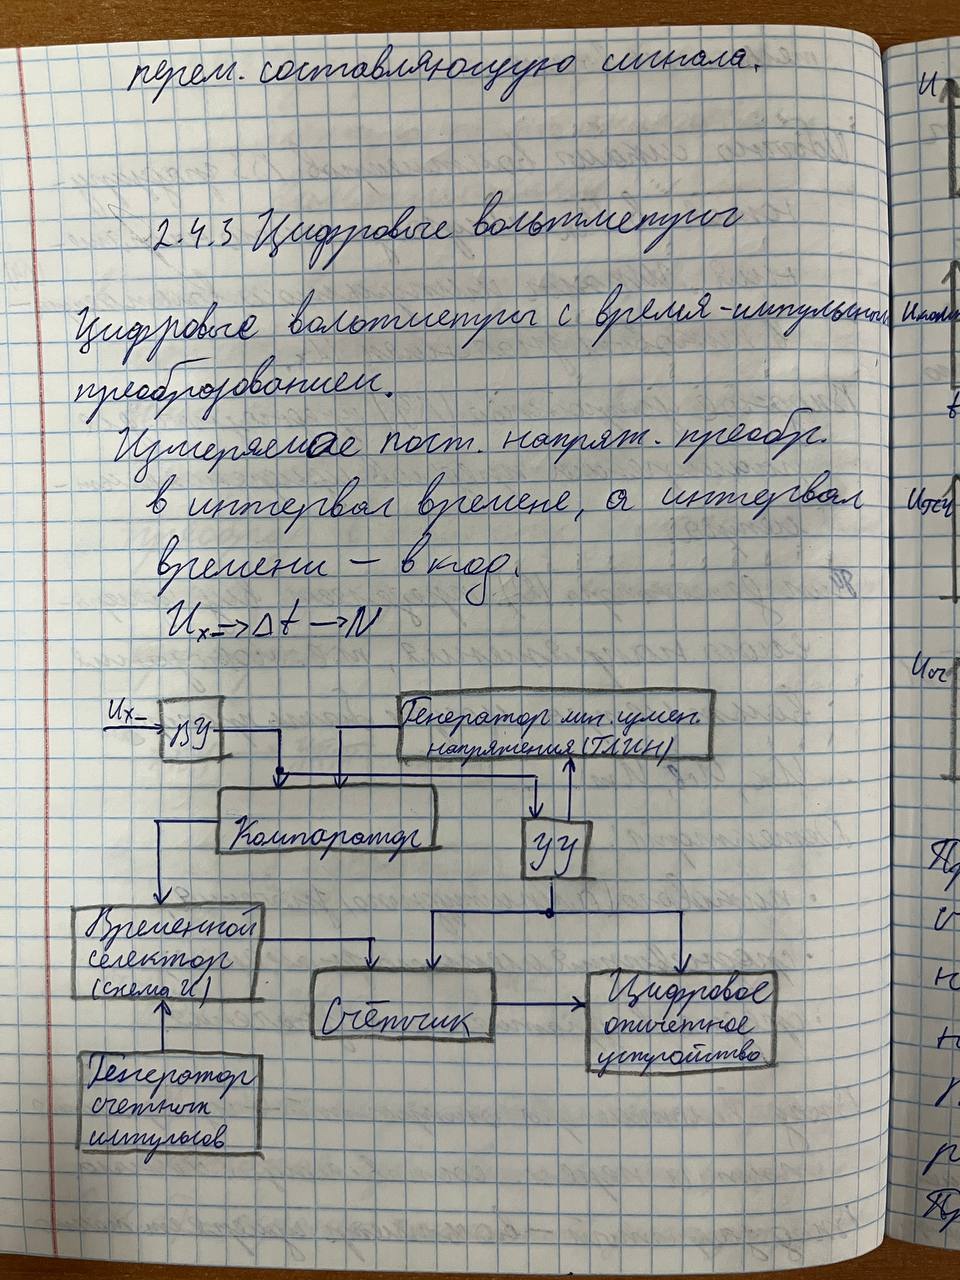 перем. составляющую сигнала.
2.4.3 Цифровые вольтметры
Цифровые вольтметры с время-импульсным
преобразованием.
Измеряемое пост. напряж. преобр.
в интервал времене, а интервал
времени – в код.
Uх= → Δt → N
Uх=
ВУ
Генератор лин. измен.
напряжения (ГЛИН)
Компаратор
УУ
Временной
селектор
(схема И)
Счётчик
Цифровое
отчётное
устройство
Генератор
счетных
импульсов
U
t
Uог